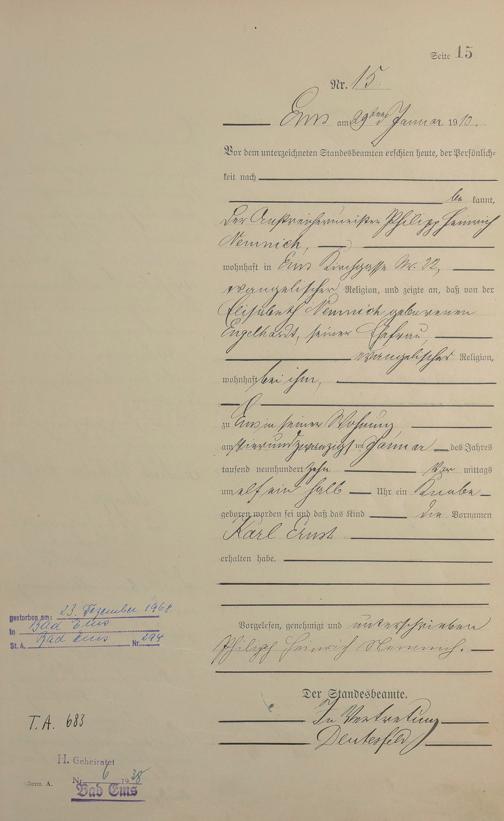 Seite 15
Nr. 15
Ems am 29ten Januar 1910.
Vor dem unterzeichneten Standesbeamten erschien heute, der Persönlich-
keit nach
be kannt,
der Anstreichermeister Philipp Heinrich
Nemnich,
wohnhaft in Ems Kirchgasse Nr. 22,
evangelischer Religion, und zeigte an, daß von der
Elisabeth Nemnich geborenen
Engelhardt, seiner Ehefrau,
evangelischer Religion,
wohnhaft bei ihm,
zu Ems in seiner Wohnung
am vierundzwanzigsten Januar des Jahres
tausend neunhundert zehn Vor mittags
um elf ein halb Uhr ein Knabe
geboren worden sei und daß das Kind die Vornamen
Karl Ernst
erhalten habe.
Vorgelesen, genehmigt und unterschrieben
Philipp Heinrich Nemnich.
Der Standesbeamte.
In Vertretung
gestorben am: 23. Dezember 1968
in Bad Ems
St. A. Bad Ems Nr. 294
T.A. 683
H. Geheiratet
Nr. 6 1938
Bad Ems
Form. A.